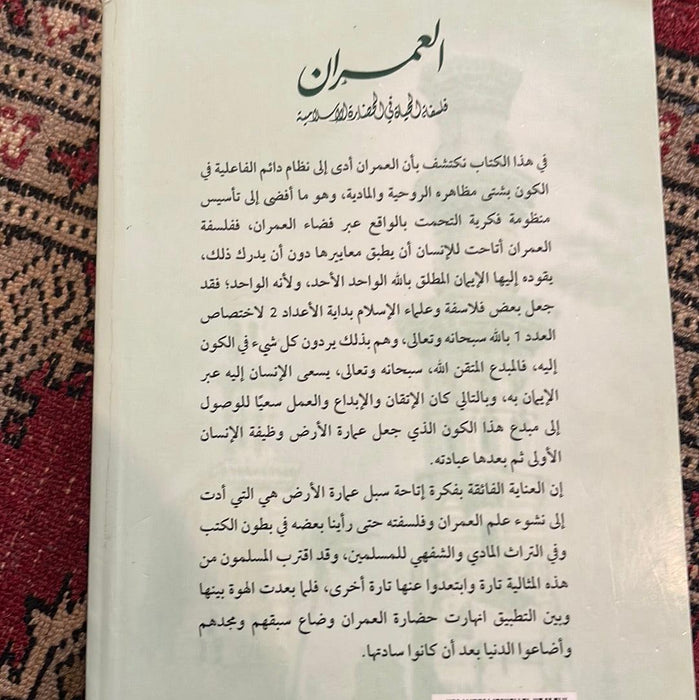 العمران
فلسفة الحياة في الحضارة الإسلامية
في هذا الكتاب نكتشف بأن العمران أدى إلى نظام دائم الفاعلية في
الكون بشتى مظاهره الروحية والمادية، وهو ما أفضى إلى تأسيس
منظومة فكرية التحمت بالواقع عبر فضاء العمران، ففلسفة
العمران أتاحت للإنسان أن يطبق معاييرها دون أن يدرك ذلك،
يقوده إليها الإيمان المطلق بالله الواحد الأحد، ولأنه الواحد؛ فقد
جعل بعض فلاسفة وعلماء الإسلام بداية الأعداد 2 لاختصاص
العدد 1 بالله سبحانه وتعالى، وهم بذلك يردون كل شيء في الكون
إليه، فالمبدع المتقن الله، سبحانه وتعالى، يسعى الإنسان إليه عبر
الإيمان به، وبالتالي كان الإتقان والإبداع والعمل سعيًا للوصول
إلى مبدع هذا الكون الذي جعل عمارة الأرض وظيفة الإنسان
الأولى ثم بعدها عبادته.
إن العناية الفائقة بفكرة إتاحة سبل عمارة الأرض هي التي أدت
إلى نشوء علم العمران وفلسفته حتى رأينا بعضه في بطون الكتب
وفي التراث المادي والشفهي للمسلمين، وقد اقترب المسلمون من
هذه المثالية تارة وابتعدوا عنها تارة أخرى، فلما بعدت الهوة بينها
وبين التطبيق انهارت حضارة العمران وضاع سبقهم ومجدهم
وأضاعوا الدنيا بعد أن كانوا سادتها.